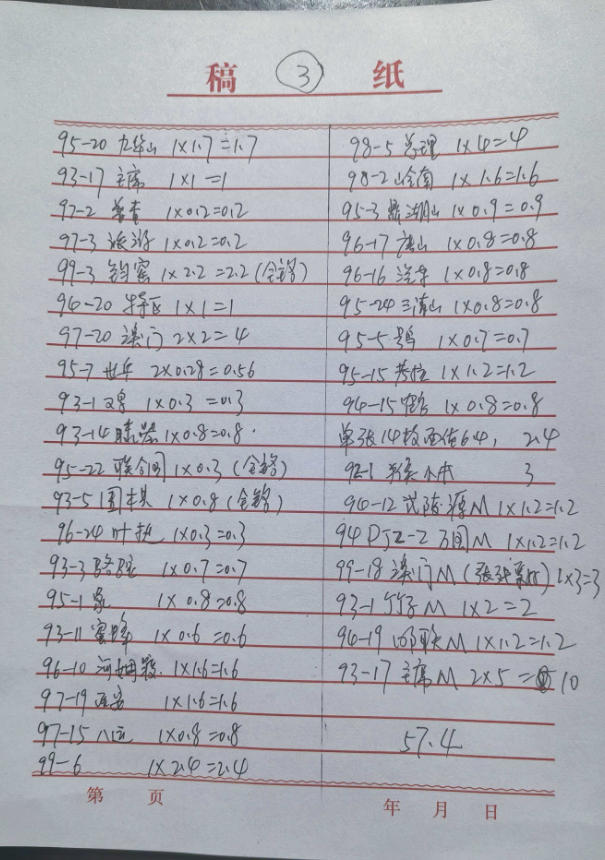 稿 3 纸
95-20 九华山 1×1.7=1.7
93-17 主席 1×1=1
97-2 普查 1×0.2=0.2
97-3 旅游 1×0.2=0.2
99-3 钧窑 1×2.2=2.2(全铬)
94-20 特区 1×1=1
97-20 澳门 2×2=4
95-7 世乒 2×0.28=0.56
93-1 1×0.3=0.3
93-14 1×0.8=0.8
95-22 联合国 1×0.3(全铬)
93-5 围棋 1×0.8(全铬)
96-24 叶挺 1×0.3=0.3
93-3 骆驼 1×0.7=0.7
95-1 1×0.8=0.8
93-11 蜜蜂 1×0.6=0.6
96-10 河姆渡 1×1.6=1.6
97-19 西安 1×1.6=1.6
97-15 八运 1×0.8=0.8
99-6 1×2.4=2.4
98-5 总理 1×4=4
98-2 岭南 1×1.6=1.6
95-3 鼎湖山 1×0.9=0.9
96-17 唐山 1×0.8=0.8
96-16 汽车 1×0.8=0.8
95-24 三清山 1×0.8=0.8
95-5 1×0.7=0.7
95-15 考拉 1×1.2=1.2
94-15 鹤 1×0.8=0.8
单张14枚面值6.4, 2.4
92-1 猴小本 3
94-12 武陵源M 1×1.2=1.2
94PJZ-2 万国M 1×1.2=1.2
99-18 澳门M 1×3=3
93-1 竹子M 1×2=2
94-19 邮联M 1×1.2=1.2
93-17 主席M 2×5=10
57.4
第 页
年 月 日